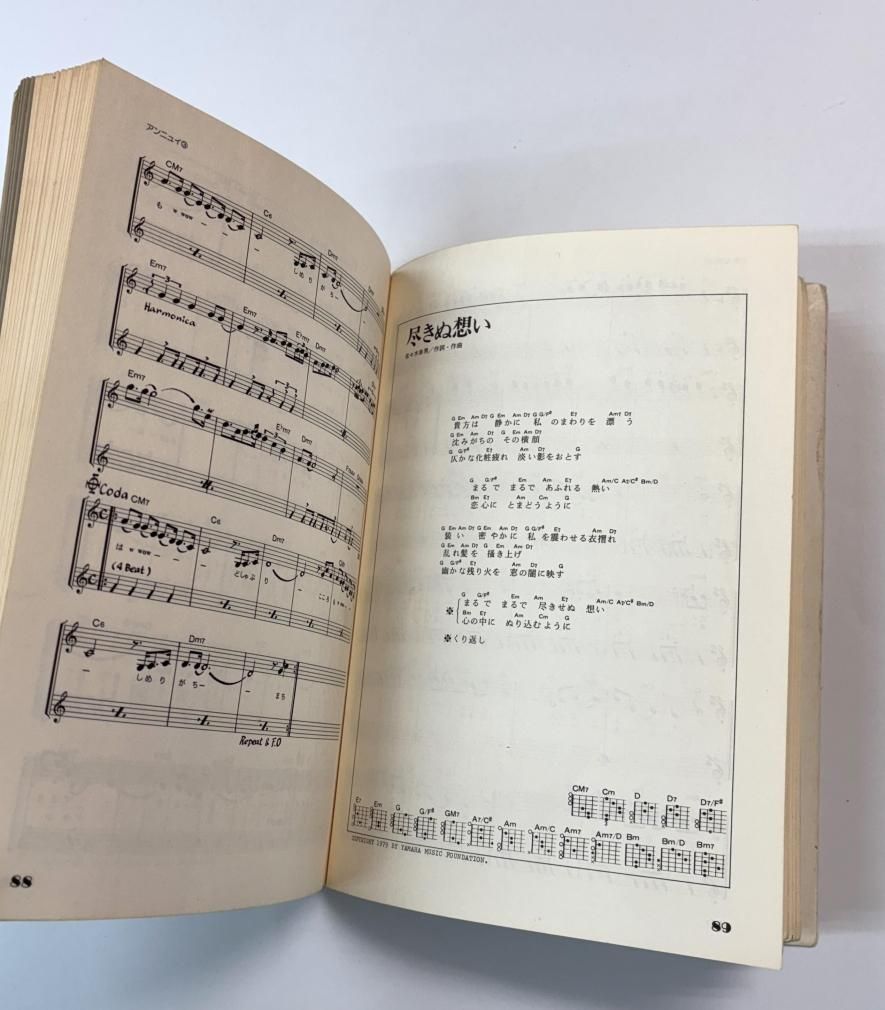 アンニュイ③
CM7
C6
Dm7
も w wow — —
しめりがちー
Em7
Em7
E♭m7
Dm7
Harmonica
Em7
E♭m7
Dm7
Coda
CM7
C6
Dm7
は w wow —
どしゃぶり
(4 Beat)
C6
Dm7
しめりがちー
まち
Repeat & F.O
88
尽きぬ想い
作詞・作曲
G Em Am D7 G Em Am D7 G G/F# E7 Am7 D7
貴方は 静かに 私 のまわりを 漂 う
G Em Am D7 G Em Am D7
沈みがちの その横顔
G G/F# E7 Am D7 G
仄かな化粧疲れ 淡い影をおとす
G G/F# Em Am E7 Am/C A7/C# Bm/D
まるで まるで あふれる 熱い
Bm E7 Am Cm G
恋心に とまどうように
G Em Am D7 G Em Am D7 G G/F# E7 Am D7
装い 密やかに 私 を震わせる衣摺れ
G Em Am D7 G Em Am D7
乱れ髪を 掻き上げ
G G/F# E7 Am D7 G
幽かな残り火を 窓の闇に映す
G G/F# Em Am E7 Am/C A7/C# Bm/D
※ まるで まるで 尽きせぬ 想い
Bm E7 Am Cm G
心の中に ぬり込むように
※くり返し
CM7 Cm D D7 D7/F#
E7 Em G G/F# GM7 A7/C# Am Am/C Am7 Am7/D Bm Bm/D Bm7
COPYRIGHT 1979 BY YAMAHA MUSIC FOUNDATION.
89